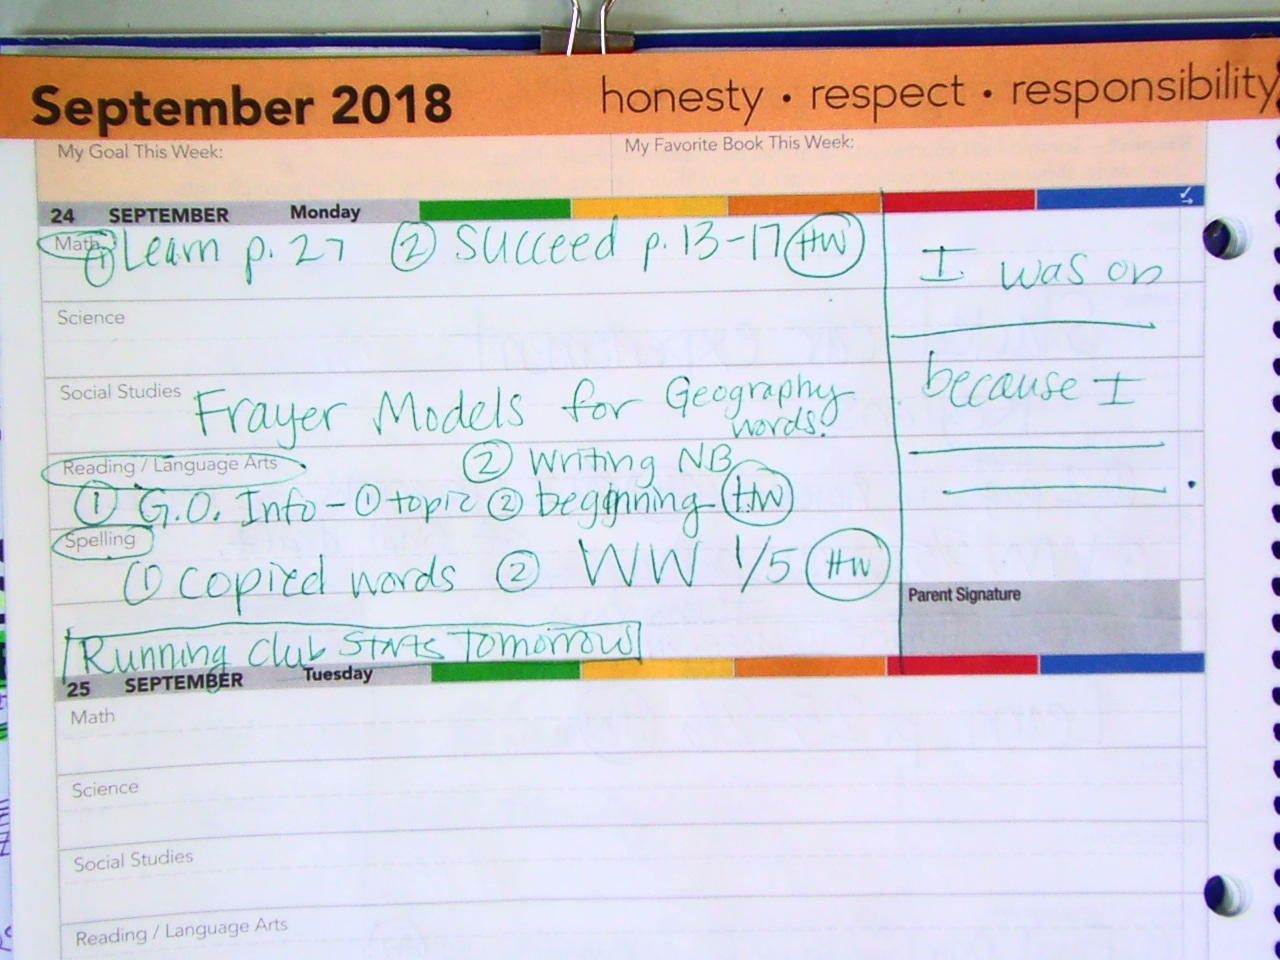 September 2018
honesty • respect • responsibility
My Goal This Week:
My Favorite Book This Week:
24 SEPTEMBER Monday
Math
① Learn p. 27 ② Succeed p. 13-17 HW
Science
Social Studies
Frayer Models for Geography words.
Reading / Language Arts
② Writing NB
① G.O. Info - ① topic ② beginning HW
Spelling
① copied words ② WW 1/5 HW
Running Club Starts Tomorrow
I was on
because I
.
Parent Signature
25 SEPTEMBER Tuesday
Math
Science
Social Studies
Reading / Language Arts